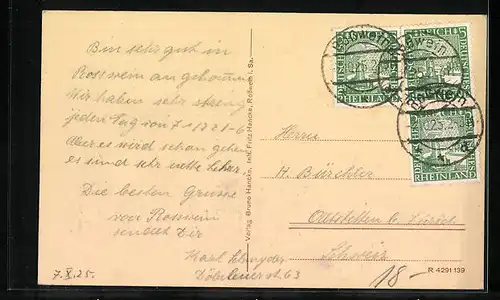 Bin sehr gut in
Rosswein angekommen
Wir haben sehr streng
jeden Tag von 7-12 1-6
Aber es wird schon gehen
es sind sehr nette Leher.
Die besten Grüsse
von Rosswein
sendet Dir
Karl
Döbelnerst. 63
7. X. 25.
Verlag Bruno Hancke, Inh. Fritz Hancke, Roßwein i. Sa.
DEUTSCHES REICH
RHEINLAND
5
Roßwein
Herrn
H. Bürchler
Altstetten b. Zürich
Schweiz
18-
R 4291139